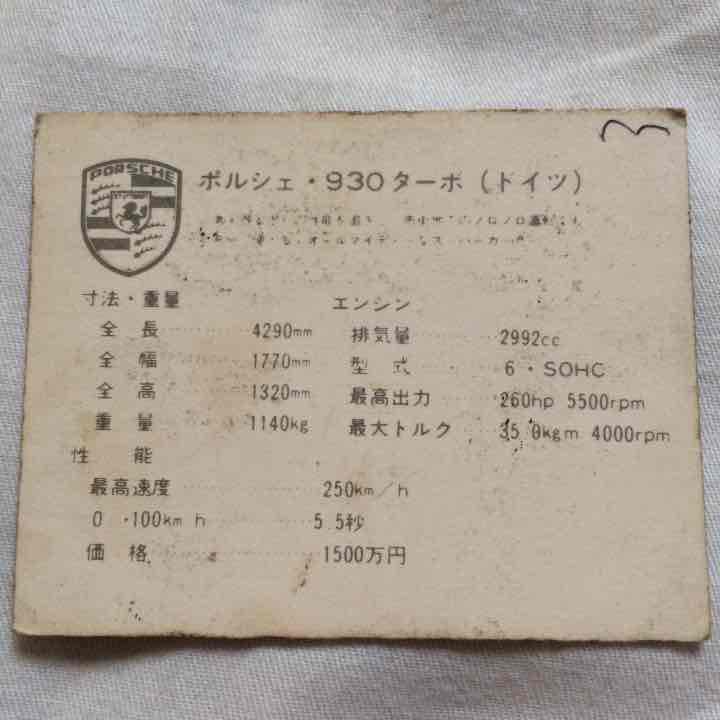 PORSCHE
ポルシェ・930ターボ(ドイツ)
寸法・重量
全長 4290mm
全幅 1770mm
全高 1320mm
重量 1140kg
エンシン
排気量 2992cc
型式 6・SOHC
最高出力 260hp 5500rpm
最大トルク 35 0kgm 4000rpm
性能
最高速度 250km/h
0 ・100km h 5 5秒
価格 1500万円